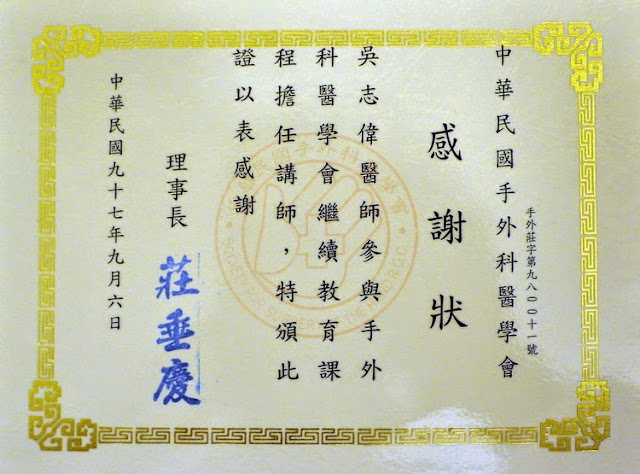 中華民國手外科醫學會
手外莊字第九八〇〇十一號
感謝狀
吳志偉醫師參與手外
科醫學會繼續教育課
程擔任講師，特頒此
證以表感謝
理事長 莊垂慶
中華民國九十七年九月六日